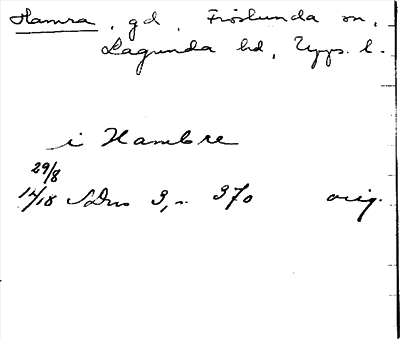 Hamra, gd, Fröslunda sn,
Lagunda hd, Upps. l.
i Hambre
29/8
1418 SDns 3, n. 370 orig.